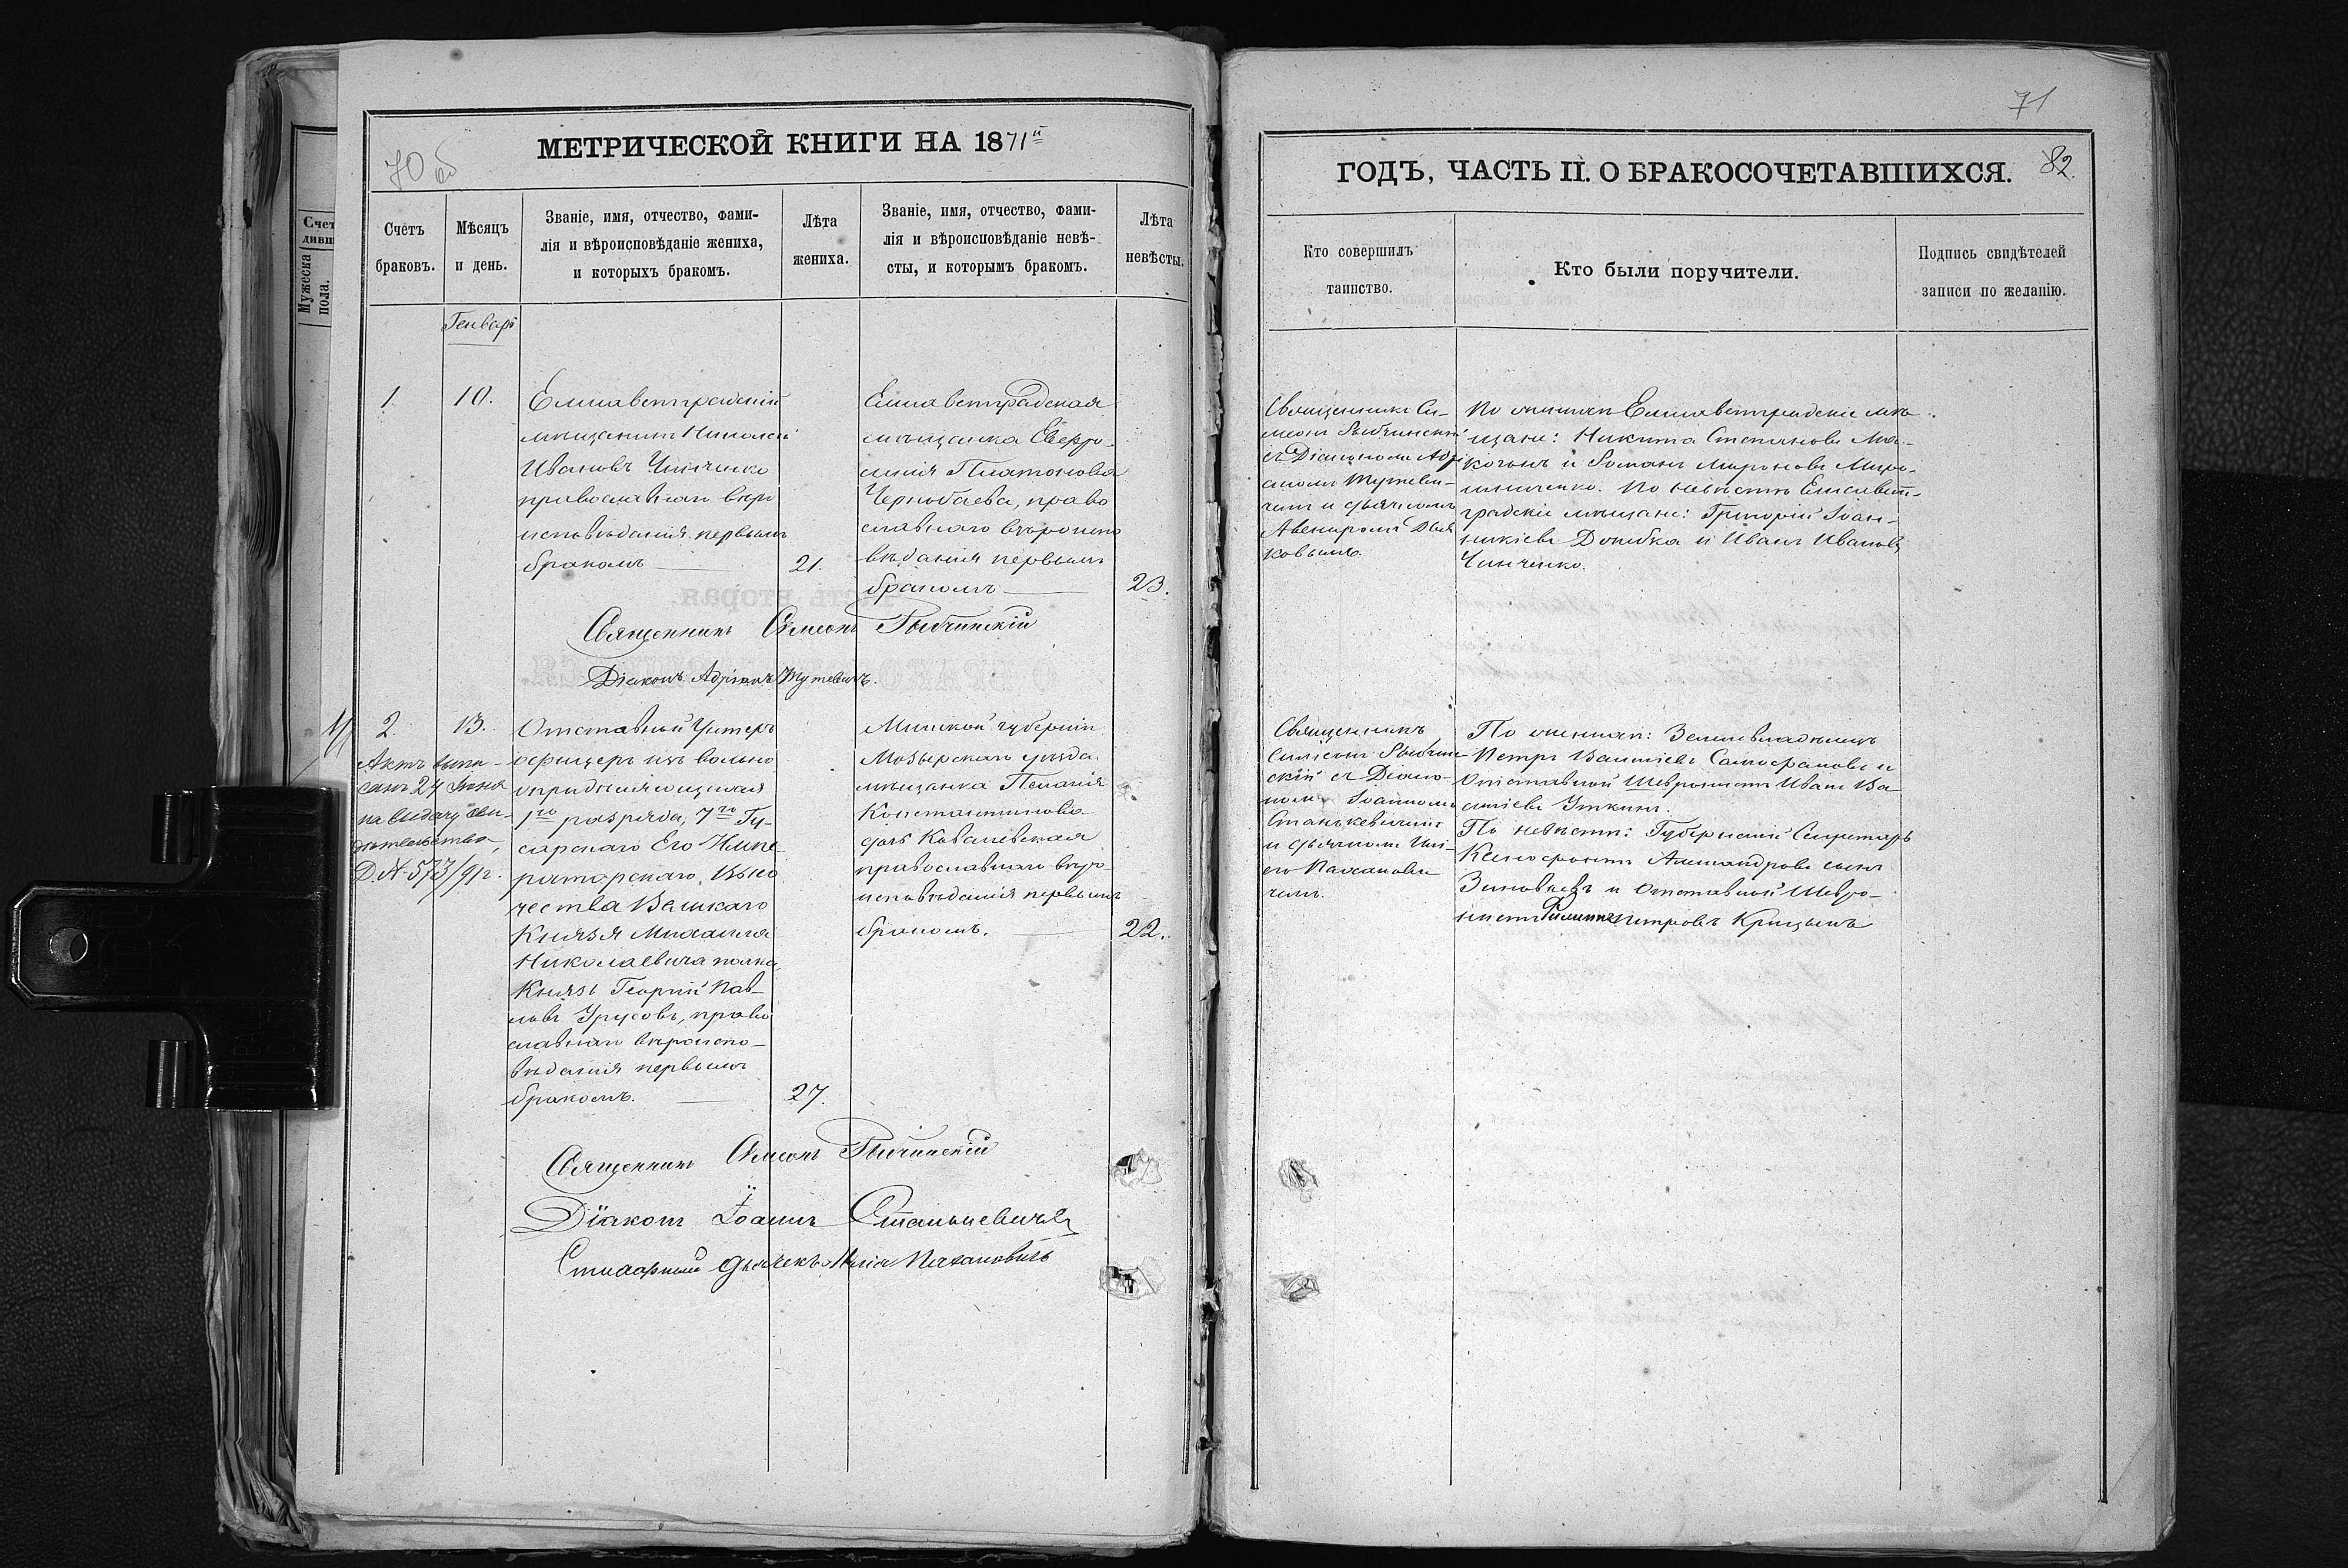 70 об
МЕТРИЧЕСКОЙ КНИГИ НА 1871й
Счетъ
браковъ.
Мѣсяцъ
и день.
Званіе, имя, отчество, фами-
лія и вѣроисповѣданіе жениха,
и которыхъ бракомъ.
Лѣта
жениха.
Званіе, имя, отчество, фами-
лія и вѣроисповѣданіе невѣ-
сты, и которымъ бракомъ.
Лѣта
невѣсты.
Мужеска
пола.
Генварь
1.
10.
Елисаветградскій
мѣщанинъ Николай
Ивановъ Чинченко
православнаго вѣро
исповѣданія первымъ
бракомъ
21.
Елисаветградская
мѣщанка Евфро-
синія Платонова
Чернобаева, право
славнаго вѣроиспо
вѣданія первымъ
бракомъ
23.
Священникъ Сѵмеонъ Рыбчинскій
Діаконъ Адріанъ Тутевичъ.
2.
13.
Актъ выпи-
санъ 24 Іюня
на выдачу сви-
дѣтельства,
Д. № 573/9 р.
Отставный Унтеръ
офицеръ изъ вольно
опредѣляющихся
1го разряда, 7го Гу-
сарскаго Его Импе-
раторскаго Высо
чества Великаго
Князя Михаила
Николаевича полка,
Князь Георгій Пав-
ловъ Урусовъ, право
славнаго вѣроиспо-
вѣданія первымъ
бракомъ.
27.
Минской губерніи
Мозырскаго уѣзда
мѣщанка Пелагія
Константинова
дочь Ковалевская
православнаго вѣро
исповѣданія первымъ
бракомъ.
22.
Священникъ Сѵмеонъ Рыбчинскій
Діаконъ Іоаннъ Станькевичъ
Стихарный дьячекъ Илія Пахановичъ
71
ГОДЪ, ЧАСТЬ II. О БРАКОСОЧЕТАВШИХСЯ.
82.
Кто совершилъ
таинство.
Кто были поручители.
Подпись свидѣтелей
записи по желанію.
Священникъ Си-
меонъ Рыбчинскій
съ Діакономъ Адрі
аномъ Тутеви-
чемъ и дьячкомъ
Авениромъ Дья
ковымъ.
По женихѣ Елисаветградскіе мѣ
щане: Никита Степановъ Ма-
и Романъ Мироновъ Миро-
ниченко. По невѣстѣ Елисавет-
градскіе мѣщане: Григорій Іоан-
никіевъ и Иванъ Ивановъ
Чинченко.
Священникъ
Симеонъ Рыбчин
скій съ Діако-
номъ Іоанномъ
Станькевичемъ
и дьячкомъ Илі-
ею Пахановы
чемъ.
По женихѣ: Землевладѣлецъ
Петръ Василіевъ и
Отставной Шевронистъ Иванъ Ва
силіевъ Уткинъ.
По невѣстѣ: Губернскій Секретарь
Ксенофонтъ Александровъ сынъ
Зиновьевъ и Отставной Шевро-
нистъ Филиппъ Петровъ Крицынъ